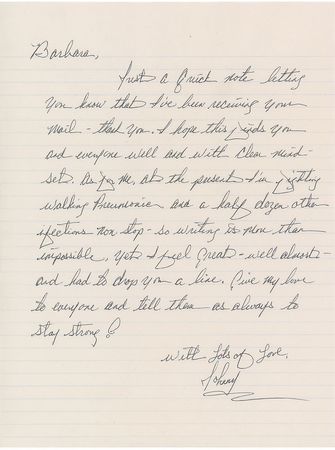 Barbara,
Just a Quick note letting
you know that I've been receiving your
mail - thank you. I hope this finds you
and everyone well and with clear mind-
set. As for me, at the present I'm fighting
walking Pneumonia and a half dozen other
ifections non stop - so writing is more than
impossible, yet I feel great - well almost -
and had to drop you a line. Give my love
to everyone and tell them as always to
stay strong!
With Lots of Love,
Johnny